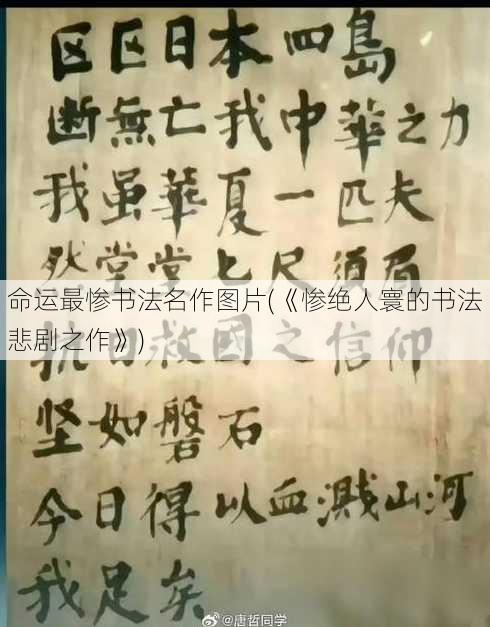 区区日本四島
断無亡我中華之力
我虽華夏一匹夫
然堂堂七尺须眉
命运最惨书法名作图片(《惨绝人寰的书法
悲剧之作》)
抗日救國之信仰
坚如磐石
今日得以血溅山河
我足矣
@唐哲同学